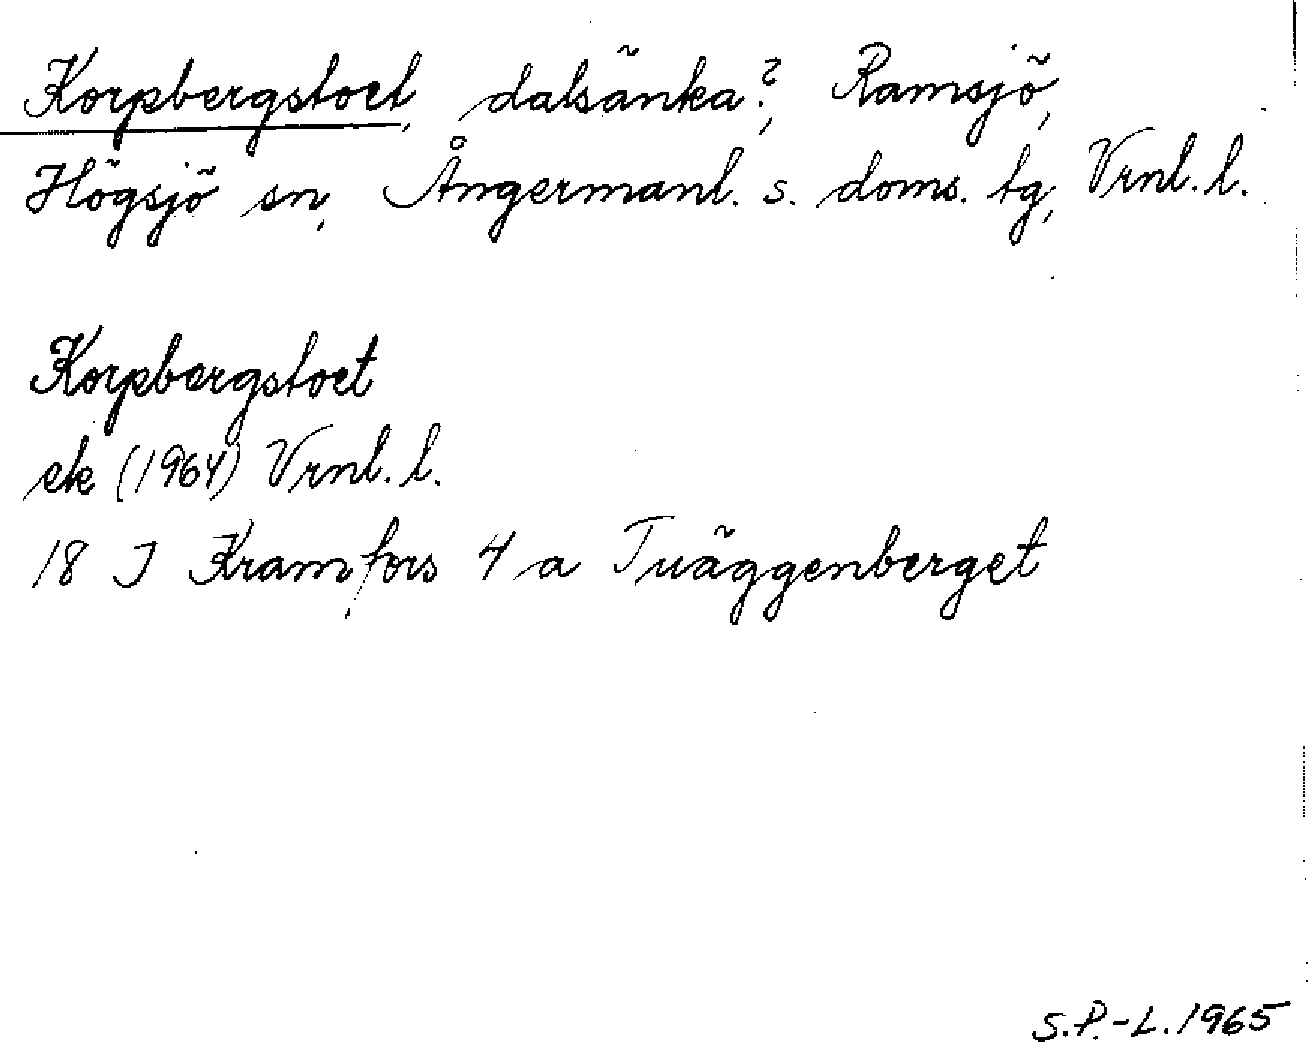 Korpbergstoet, dalsänka?, Ramsjö,
Högsjö sn, Ångermanl. s. doms. tg, Vrnl. l.
Korpbergstoet
ek (1964) Vrnl. l.
18 J Kramfors 4 a Tväggenberget
S.P.-L. 1965